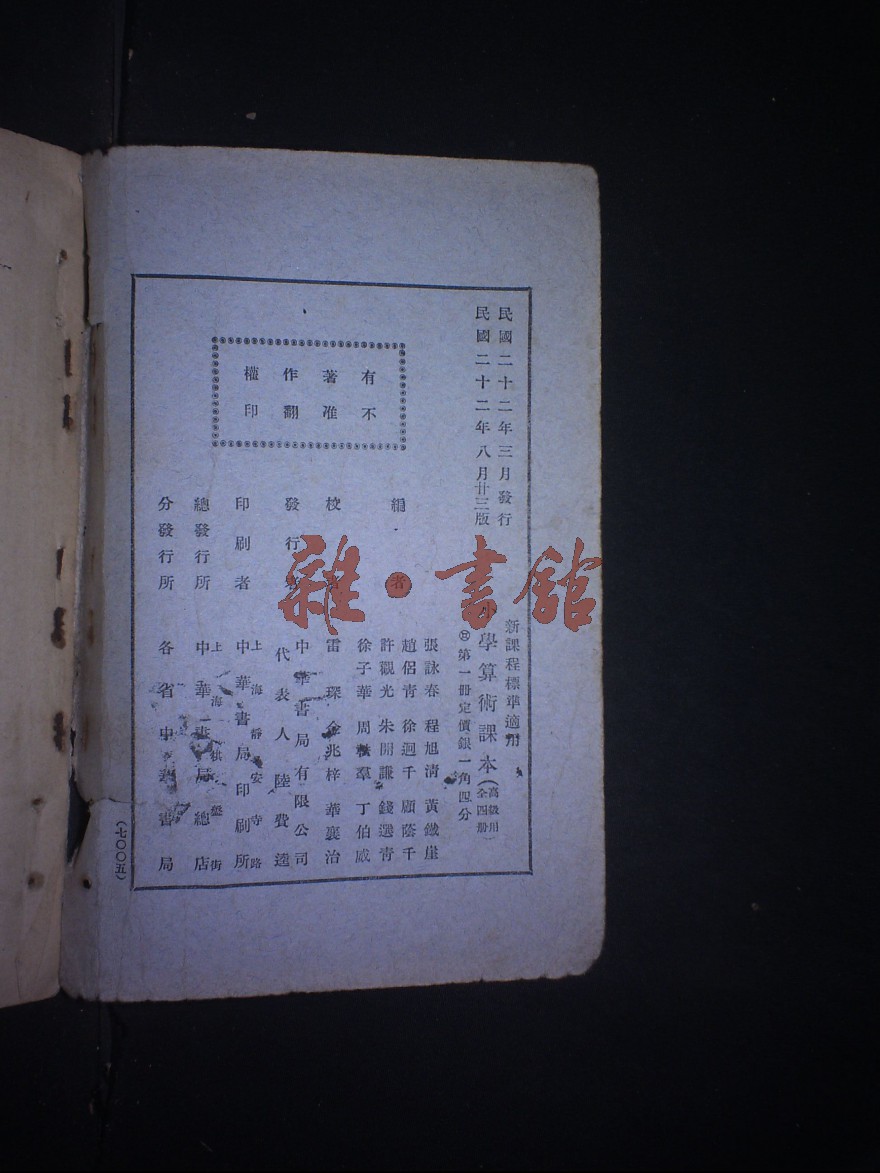 民國二十二年三月發行
民國二十二年八月廿三版
新課程標準適用
小學算術課本(高級用 全四册)
第一冊定價銀一角四分
有著作權
不准翻印
編者
張詠春 程旭淸 黃鐵崖
趙侶靑 徐迥千 顧蔭千
許觀光 朱開謙 錢選靑
徐子華 周 羣 丁伯威
校者
雷琛 金兆梓 華襄治
發行者
中華書局有限公司
代表人 陸費逵
印刷者
上海靜安寺路
中華書局印刷所
總發行所
上海棋盤街
中華書局總店
分發行所
各省中華書局
(七〇〇五)
雜·書館